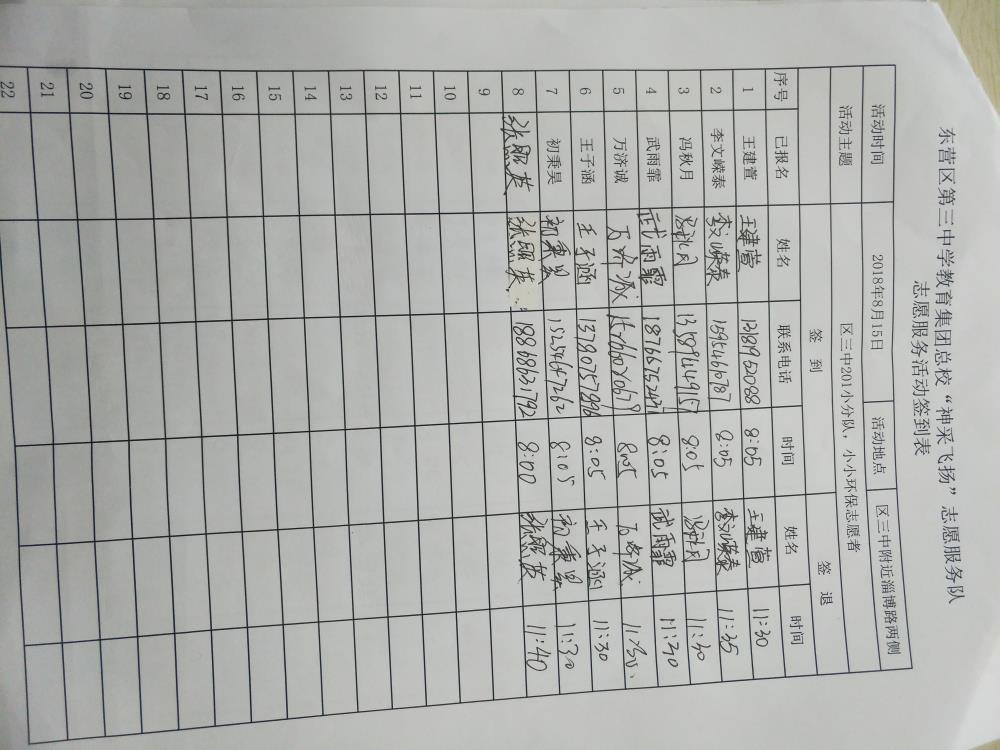 东营区第三中学教育集团总校“神采飞扬”志愿服务队
志愿服务活动签到表
活动时间 2018年8月15日 活动地点 区三中附近淄博路两侧
活动主题 区三中201小分队，小小环保志愿者
签 到 签 退
序号 已报名 姓名 联系电话 时间 姓名 时间
1 王建萱 王建萱 8:05 王建萱 11:30
2 李文嵘泰 李文嵘泰 8:05 李文嵘泰 11:35
3 冯秋月 冯秋月 8:05 冯秋月 11:30
4 武雨霏 武雨霏 8:05 武雨霏 11:30
5 万济诚 万济诚 8:05 万济诚 11:30
6 王子涵 王子涵 8:05 王子涵 11:30
7 初秉昊 初秉昊 15254647262 8:05 初秉昊 11:30
8 18868631792 8:00 11:40
9
10
11
12
13
14
15
16
17
18
19
20
21
22